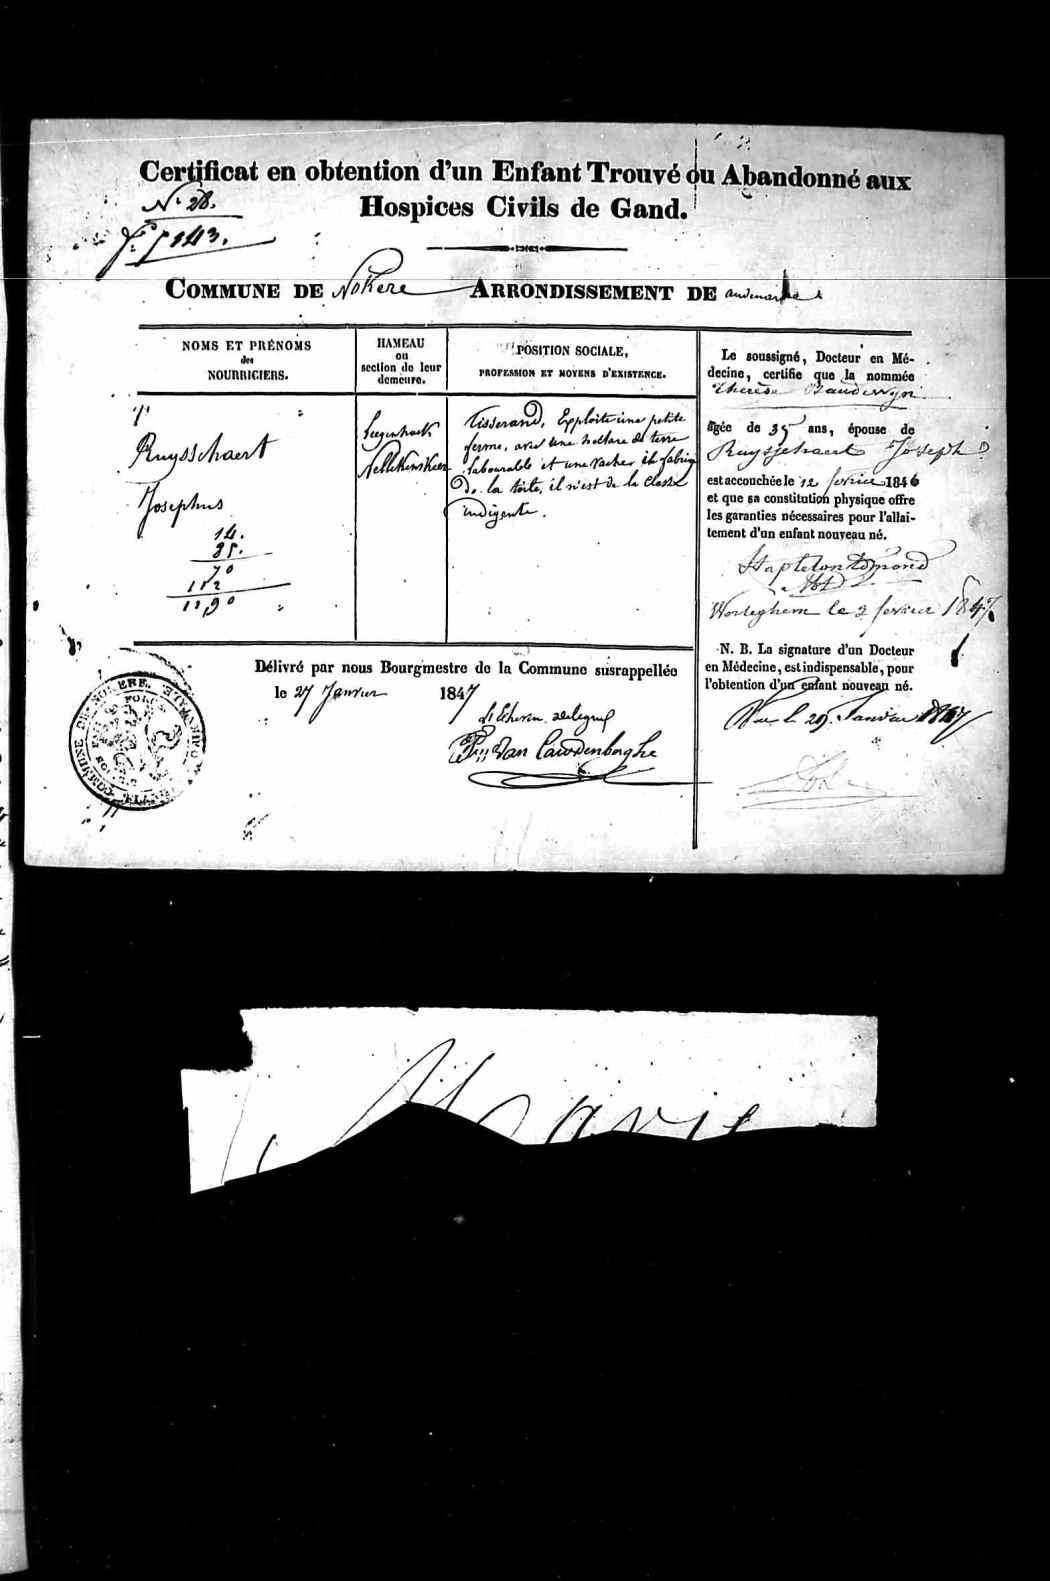 Certificat en obtention d'un Enfant Trouvé ou Abandonné aux
Hospices Civils de Gand.
N° 28.
143.
COMMUNE DE Nokere ARRONDISSEMENT DE audenarde
NOMS ET PRÉNOMS
des
NOURRICIERS.
HAMEAU
ou
section de leur
demeure.
POSITION SOCIALE,
PROFESSION ET MOYENS D'EXISTENCE.
Ruysschaert
Josephus
14.
85.
70
112
11,90
Tisserand, Exploite une petite
ferme, avec une hectare de terre
labourable et une vache, il fabrique
de la toile, il n'est de la classe
indigente.
Le soussigné, Docteur en Mé-
decine, certifie que la nommée
Therèse Baudewyn
âgée de 35 ans, épouse de
Ruysschaert Joseph
est accouchée le 12 fevrier 1846
et que sa constitution physique offre
les garanties nécessaires pour l'allai-
tement d'un enfant nouveau né.
Stapleton Edmond
Worteghem le 2 fevrier 1847
N. B. La signature d'un Docteur
en Médecine, est indispensable, pour
l'obtention d'un enfant nouveau né.
Vu le 29 Janvier 1847
Délivré par nous Bourgmestre de la Commune susrappellée
le 27 Janvier 1847
L'Echevin délégué
Van Cauwenberghe
COMMUNE DE NOKERE
Marie